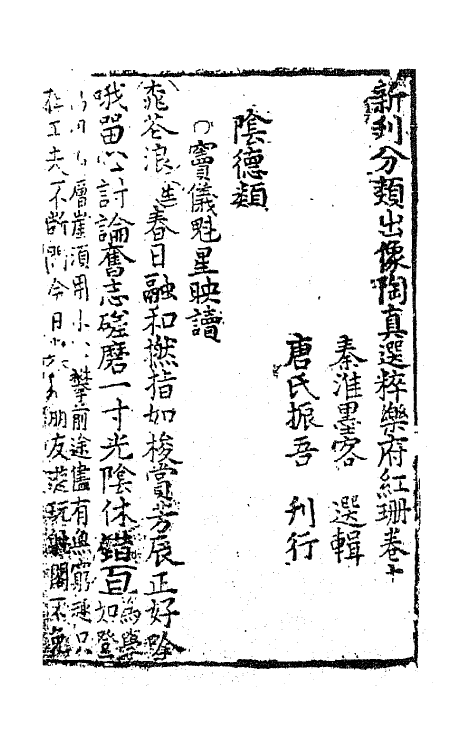 新刋分類出像陶真選粹樂府紅珊卷十
秦淮墨客 選輯
唐氏振吾 刋行
陰德類
○竇儀魁星映讀
蒼浪 春日融和撚指如梭賞芳辰正好吟
哦留心討論奮志磋磨一寸光陰休錯過 為學如登
層崖須用小心攀前途儘有無窮 只
在工夫不斷間今日 朋友 玩 閣不